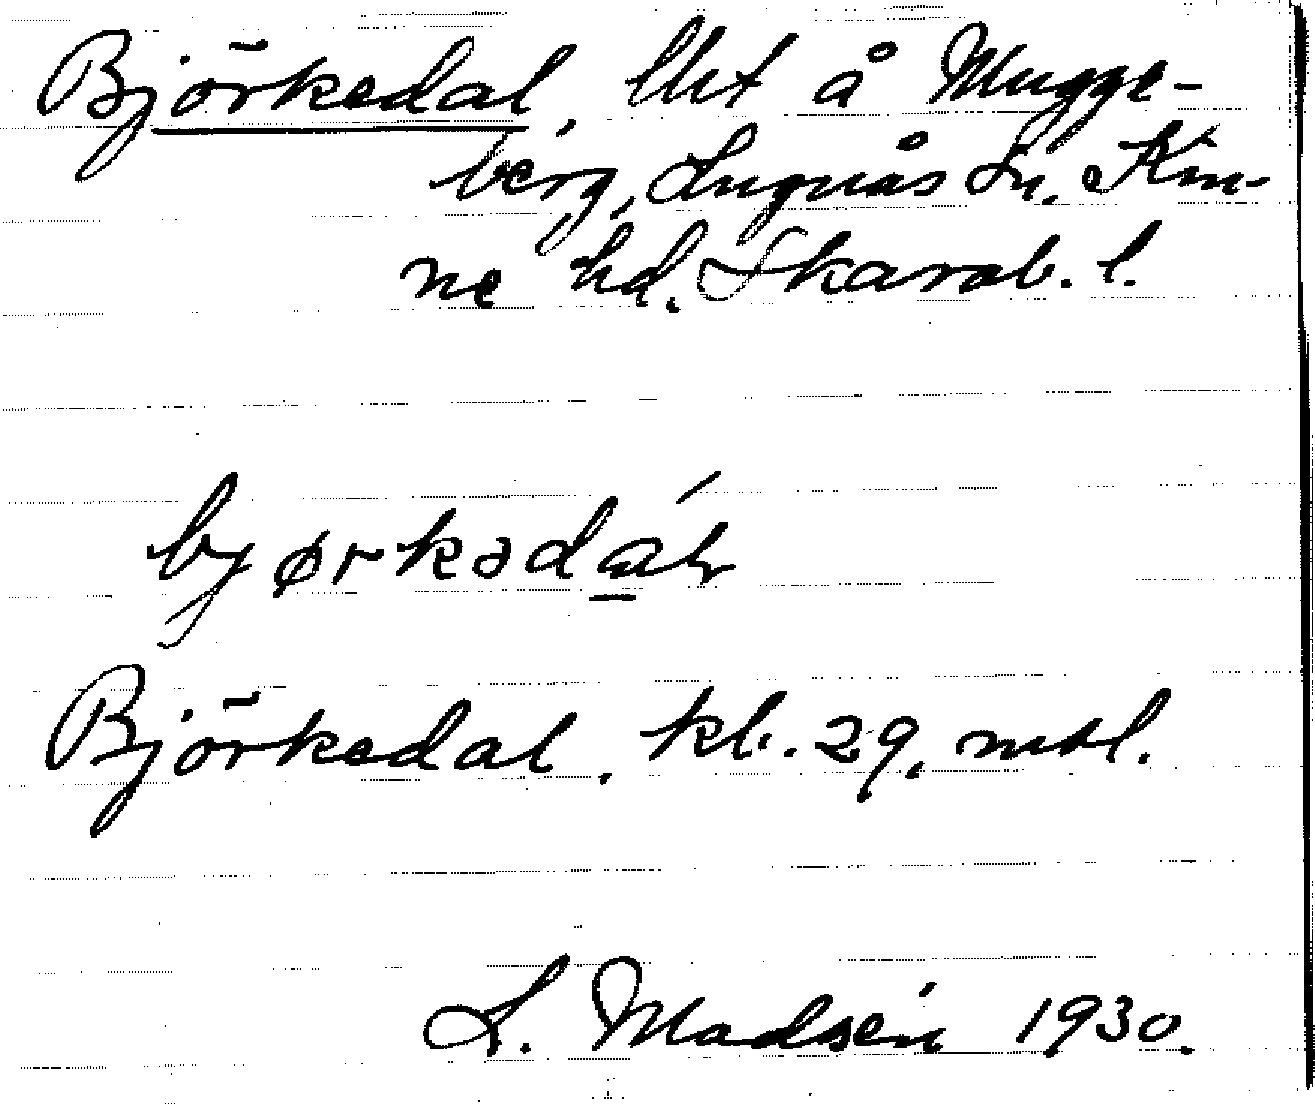 Björkedal, lht å Mugge-
berg, Lugnås sn, Kin-
ne hd. Skarab. l.
bjørkədal
Björkedal, kb. 29, mtl.
S. Madsén 1930.